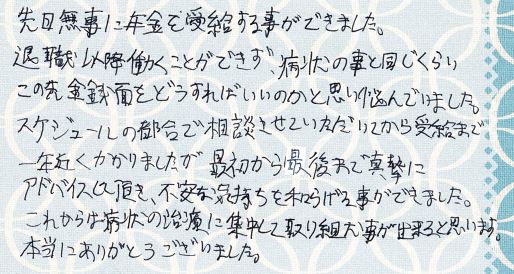 先日無事に年金を受給する事ができました。
退職以降働くことができず、病状の事と同じくらい
この先金銭面をどうすればいいのかと思い悩んでいました。
スケジュールの都合で相談させていただいてから受給まで
一年近くかかりましたが最初から最後まで真摯に
アドバイスして頂き、不安な気持ちを和らげる事ができました。
これからは病状の治療に集中して取り組む事が出来ると思います。
本当にありがとうございました。